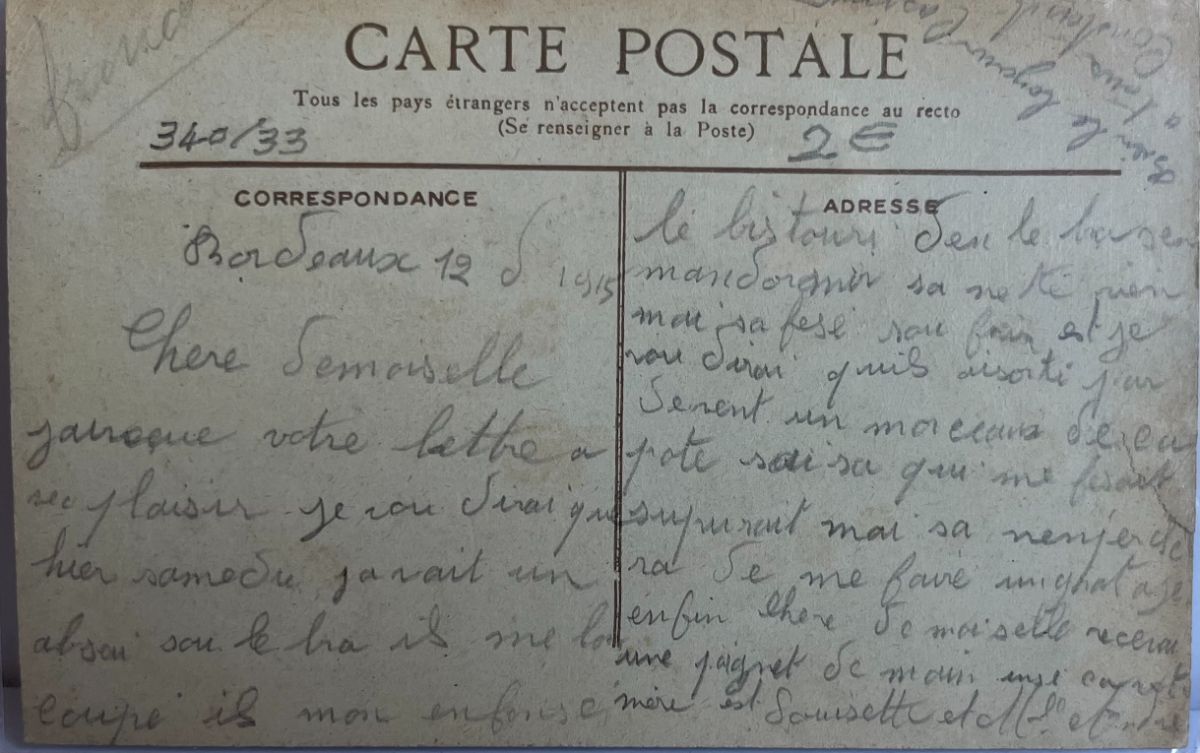 CARTE POSTALE
Tous les pays étrangers n'acceptent pas la correspondance au recto
(Se renseigner à la Poste)
340/33
2€
CORRESPONDANCE
Bordeaux 12 d 1915
Chere Demoiselle
votre lettre a
vec plaisir je vou dirai que
hier samedu javait un
absai sou le bra il me lon
coupé il mon enfonse
ADRESSE
le bistouri den le ba sen
mandormir sa ne té rien
mai sa fesé sou fair est je
vou dirai quils
un morceaux de ca
pote sai sa qui me fesait
supurait mai sa
ra de me faire
enfin Chere demoiselle recevai
une poignet de main
mère est Louisette et